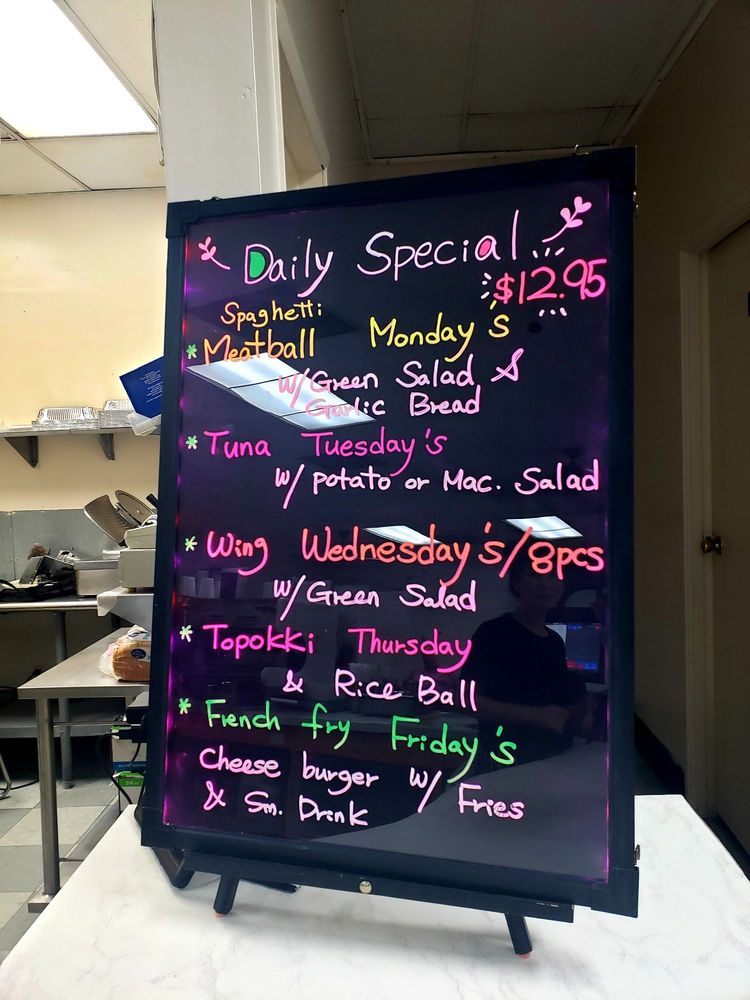 Daily Special
$12.95
Spaghetti
* Meatball Monday's
w/Green Salad &
Garlic Bread
* Tuna Tuesday's
w/ potato or Mac. Salad
* Wing Wednesday's/8pcs
w/Green Salad
* Topokki Thursday
& Rice Ball
* French fry Friday's
Cheese burger w/ Fries
& Sm. Drink